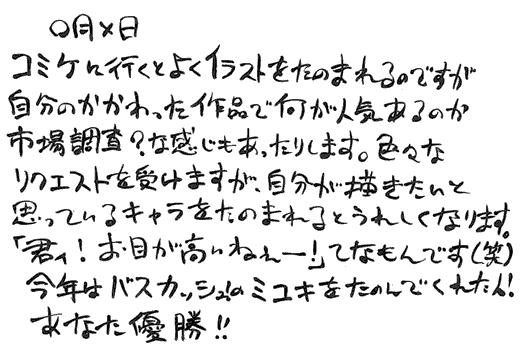 〇月×日
コミケに行くとよくイラストをたのまれるのですが
自分のかかわった作品で何が人気あるのか
市場調査?な感じもあったりします。色々な
リクエストを受けますが、自分が描きたいと
思っているキャラをたのまれるとうれしくなります。
「君ィ!お目が高いねぇー!」てなもんです(笑)
今年はバスカッシュ!のミユキをたのんでくれた人!
あなた優勝!!